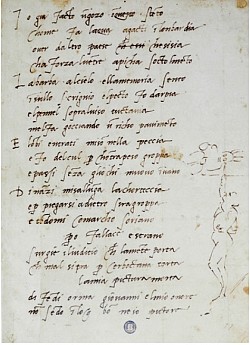 I o gia facto ngozo in questo stento
chome fa lacqua agacti i lombardia
over daltro paese che essi chesisia
cha forza lventre apicha socto lmento
La barba alcielo ellamemoria sento
insullo scrignio elpecto fo darpia
elpennel sopraluiso tuctavia
melfa gocciando u richo pauimento
E lobi entrati miso nella peccia
e fo delcul p chotrapeso groppa
e passi seza gliochi muouo inuano
Dinazi misalluga lachorteccia
e p piegarsi adietro siragroppa
e tedomi comarcho soriano
po fallace e strano
surgie iliuditio che lamete porta
che mal sitra p cerboctana torta
lamia pictura morta
difedi orma giovanni elmio onore
no sedo i loco bo ne io pictore